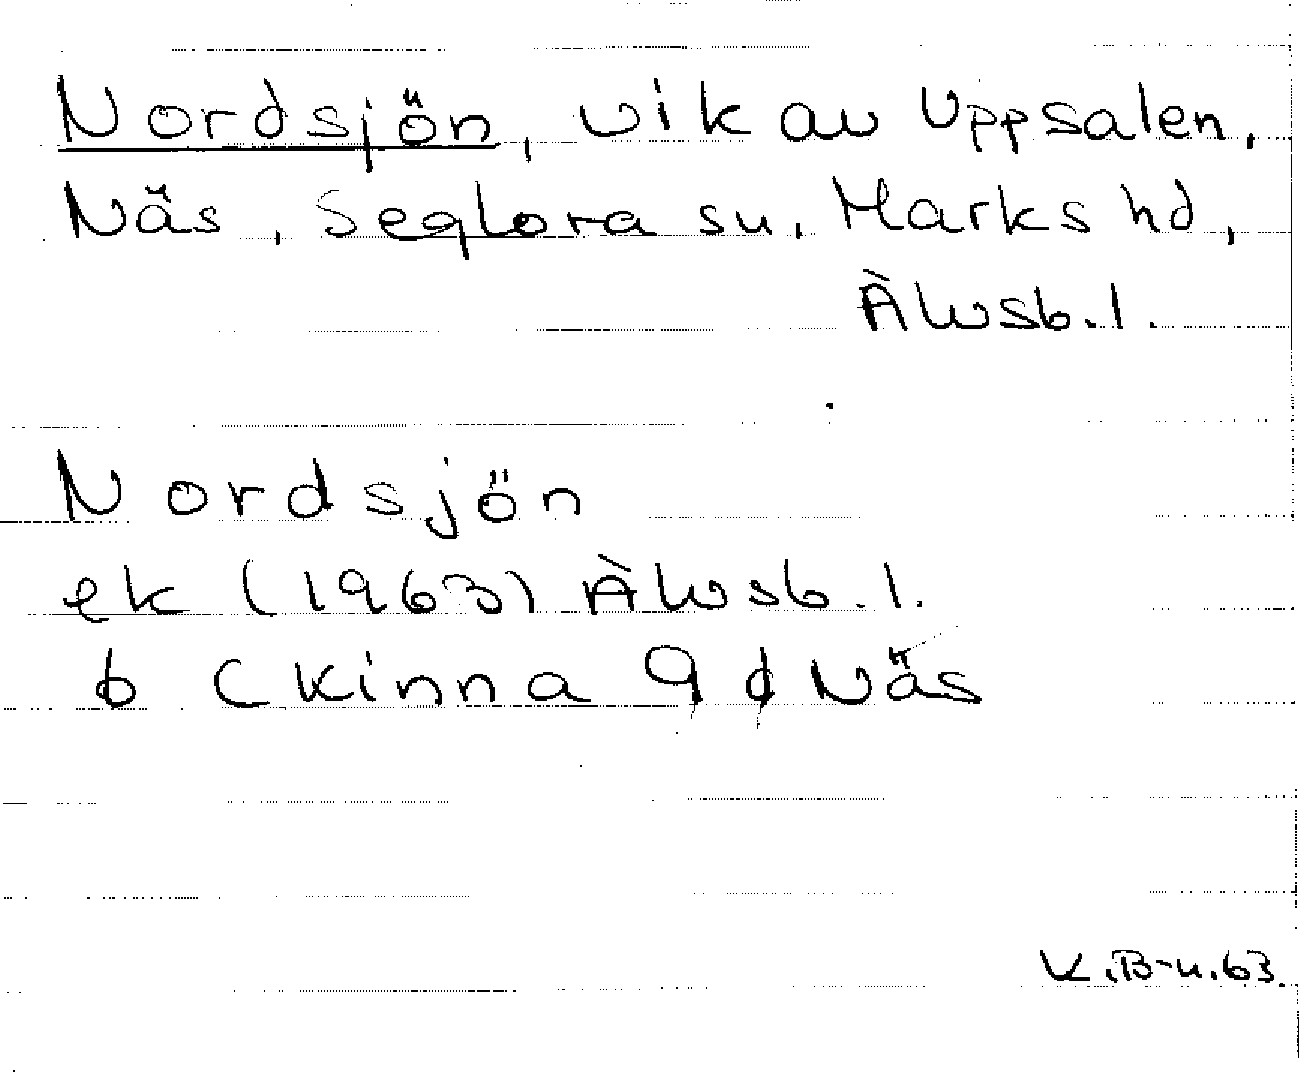 Nordsjön, vik av Uppsalen.
Näs, Seglora sn, Marks hd,
Älvsb. l.
Nordsjön
ek (1963) Älvsb. l.
b (Kinna 9 d Näs
K.B-n.63.